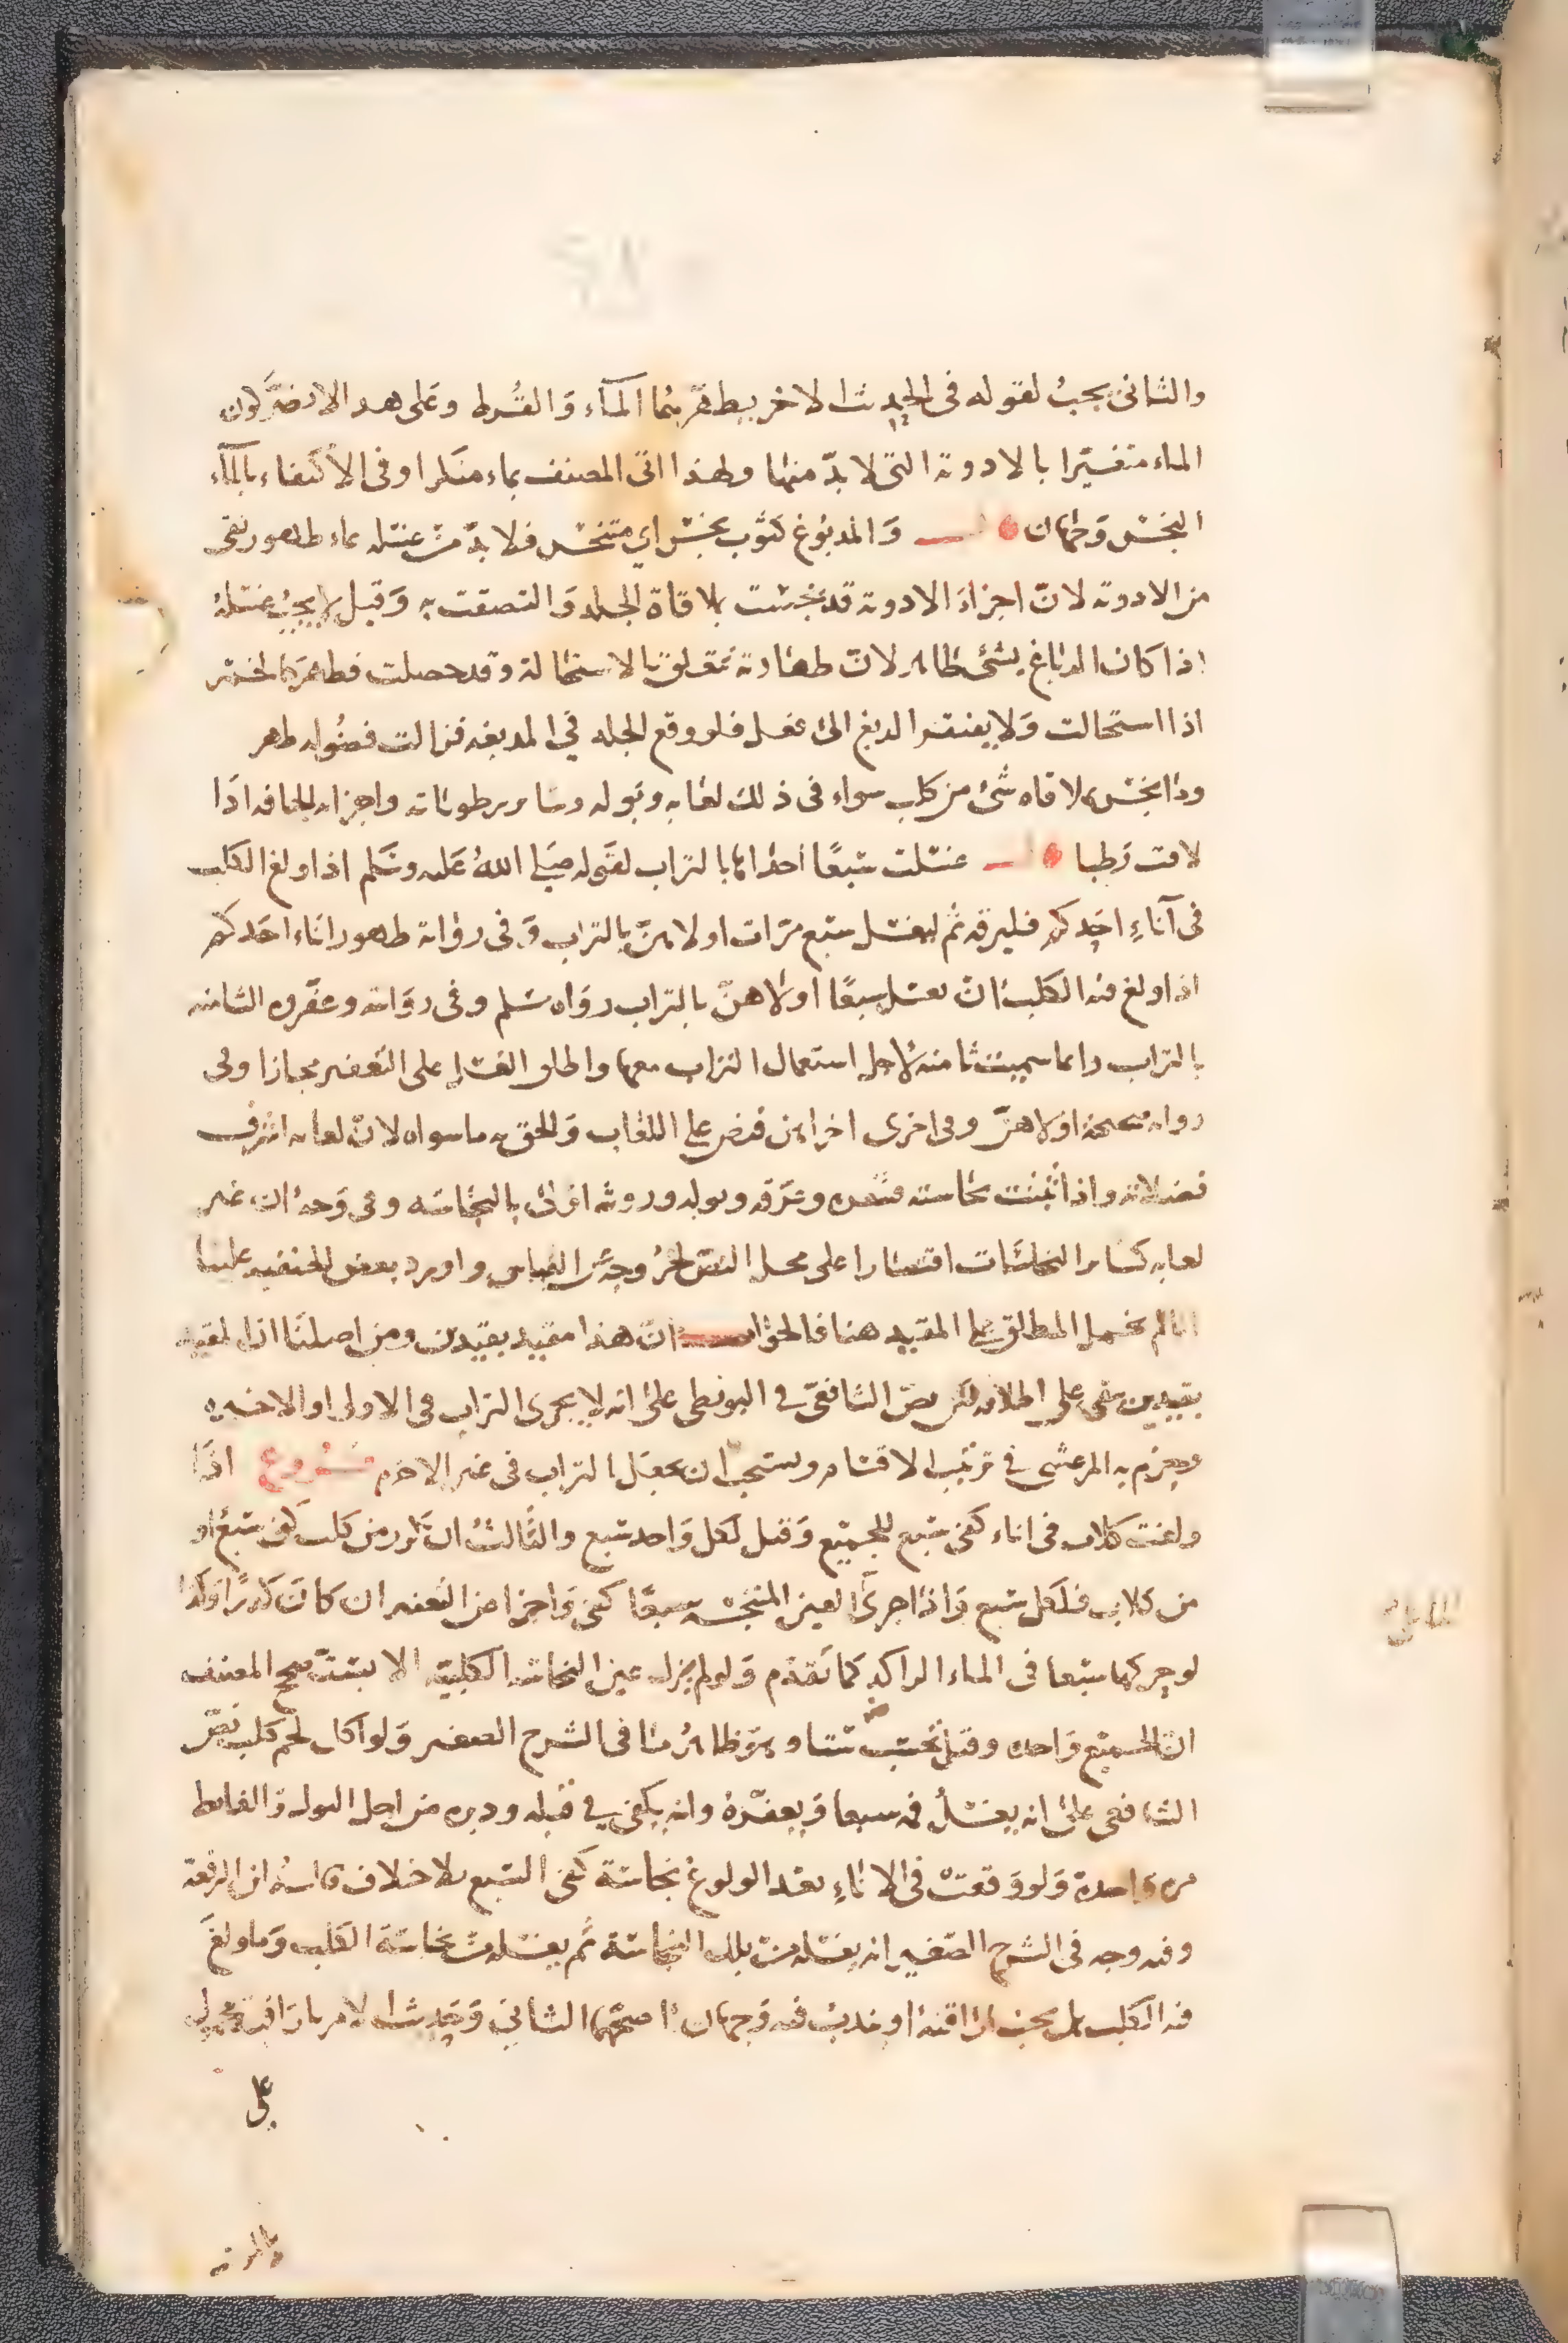 والثاني يجب لقوله في الحديث الاخر يطهرهما المآء وَالقُرط وعَلى هذا لا يضر كون
الماء متغيرا بالادوية التي لا بدّ منها ولهذا اتى المصنف بماء منكرا وفي الاكتفاء بالمآء
النجس وَجهان وَالمدبُوغ كثوب نجس اي متنجس فلا بدّ من غسله بماء طهور نقي
من الادوية لانّ اجزاءَ الادوية قد نجست بملاقاة الجلد وَالتصقت به وَقيل لا يجبُ غسلهُ
اذا كان الدباغ بشئ طاهر لانّ طهارته تتعلق بالاستحالة وقد حصلت فطهر كالخمر
اذا استحالت وَلا يفتقر الدبغ الى فعل فلو وقع الجلد في المدبغه فزالت فضُوله طهر
وما نجس بملاقاه شئ من كلب سواء في ذلك لعابه وبوله وسائر رطوباته واجزائه الجافه اذَا
لاقت رَطبا غسلت سَبعًا احداها بالتراب لقوله صَلى اللهُ عَليه وسَلم اذا ولغ الكلب
في آناءِ احَدكم فليرقه ثم ليغسله سبع مرّات اولاهنّ بالتراب وَفي رواية طهور انَاء احَدكم
اذا ولغ فيه الكلبُ انّ يغسل سبعًا اولاهنّ بالتراب روَاه مسلم وفي روَاية وعفّروه الثامنه
بالتراب وانما سميت ثامنه لاجل استعمال التراب معها واطلق الغسل على التعفير مجازا وفي
روايه صحيحة اولاهنّ وفي اخرى اخراهن فنص على اللعَاب وَالحق به ما سواه لانّ لعابه اشرف
فضلاته واذا ثبتت نجاسته فشعره وعرَقه وبوله وروثه اولى بالنجاسَه وفي وَجه ان غير
لعابه كسَائر النجاسَات اقتصارا على محل النص لخرُوجه عن القياس واورد بعض الحنفيه علينا
انا لم نحمل المطلق على المقيد هنا فالجواب انّ هذا مقيد بقيدين ومن اصلنَا انّ المقيد
بقيدين بقي على اطلاقه لكن نصّ الشافعيّ في البويطي على انه لا يجزى التراب في الاولى او الاخيره
وجزم به المرعشي في ترتيب الاقسام ويستحب ان يجعَل التراب في غير الاخيره فـــروع اذَا
ولغت كلاب في اناء كفى سَبع للجميع وَقيل لكل وَاحد سَبع والثالثُ ان تكرر من كلب كفى سَبع او
من كلاب فلكل سَبع وَاذا جرى العين المنجسَه سبعًا كفى وَاجزا عن التعفير ان كانَ كدرًا وَكذا
لو حركها سبعا في الماء الراكد كما تقدم وَلو لم يزل عين النجاسَه الكلبيّة الا بستّ صحح المصنف
ان الجميع وَاحده وقيل تحسب ستا وهو ظاهرُ ما في الشرح الصغير وَلو اكل لحم كلب نصّ
الشافعي على انه يغسلُ فمه سبعا وَيعفّرهُ وانه يكفي في قبله ودبره من اجل البوله وَالغايط
مره واحدة وَلو وَقعتْ في الاناءِ بعد الولوغ نجاسَة كفى السَبع بلا خلاف قالهُ ابن الرفعة
وفيه وجه في الشرح الصَغير انه يغسله من تلك النجاسَة ثم يغسله من نجاسَة الكلب وَما ولغَ
فيه الكلب هل يجبُ اراقتهُ او يندبُ فيه وَجهان اصحّهما الثاني وَحديث الامر باراقته محمول
على